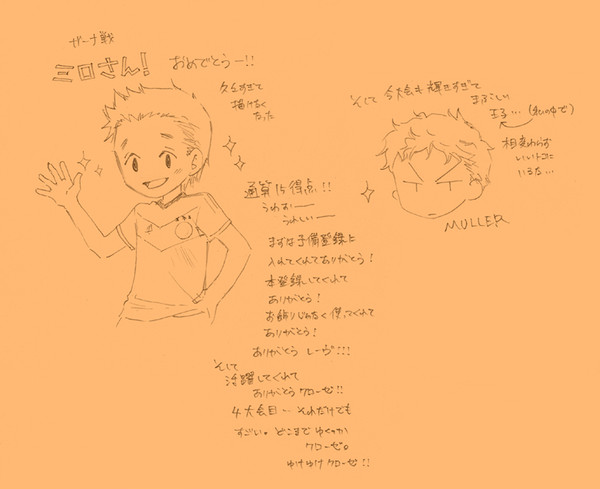 ガーナ戦
ミロさん!
おめでとうー!!
久々すぎて
描けなく
なった
通算15得点!!
うわおーー
うれしいーー
まずは予備登録に
入れてくれてありがとう!
本登録してくれて
ありがとう!
お飾りじゃなく使ってくれて
ありがとう!
ありがとう レーヴ!!!
そして
活躍してくれて
ありがとう クローゼ!!
4大会目… それだけでも
すごい。どこまで ゆくのか
クローゼ。
ゆけゆけ クローゼ!!
そして 今大会も 輝きすぎて
まぶしい
(私の中で)
相変わらず
いいトコに
いるな…
MULLER